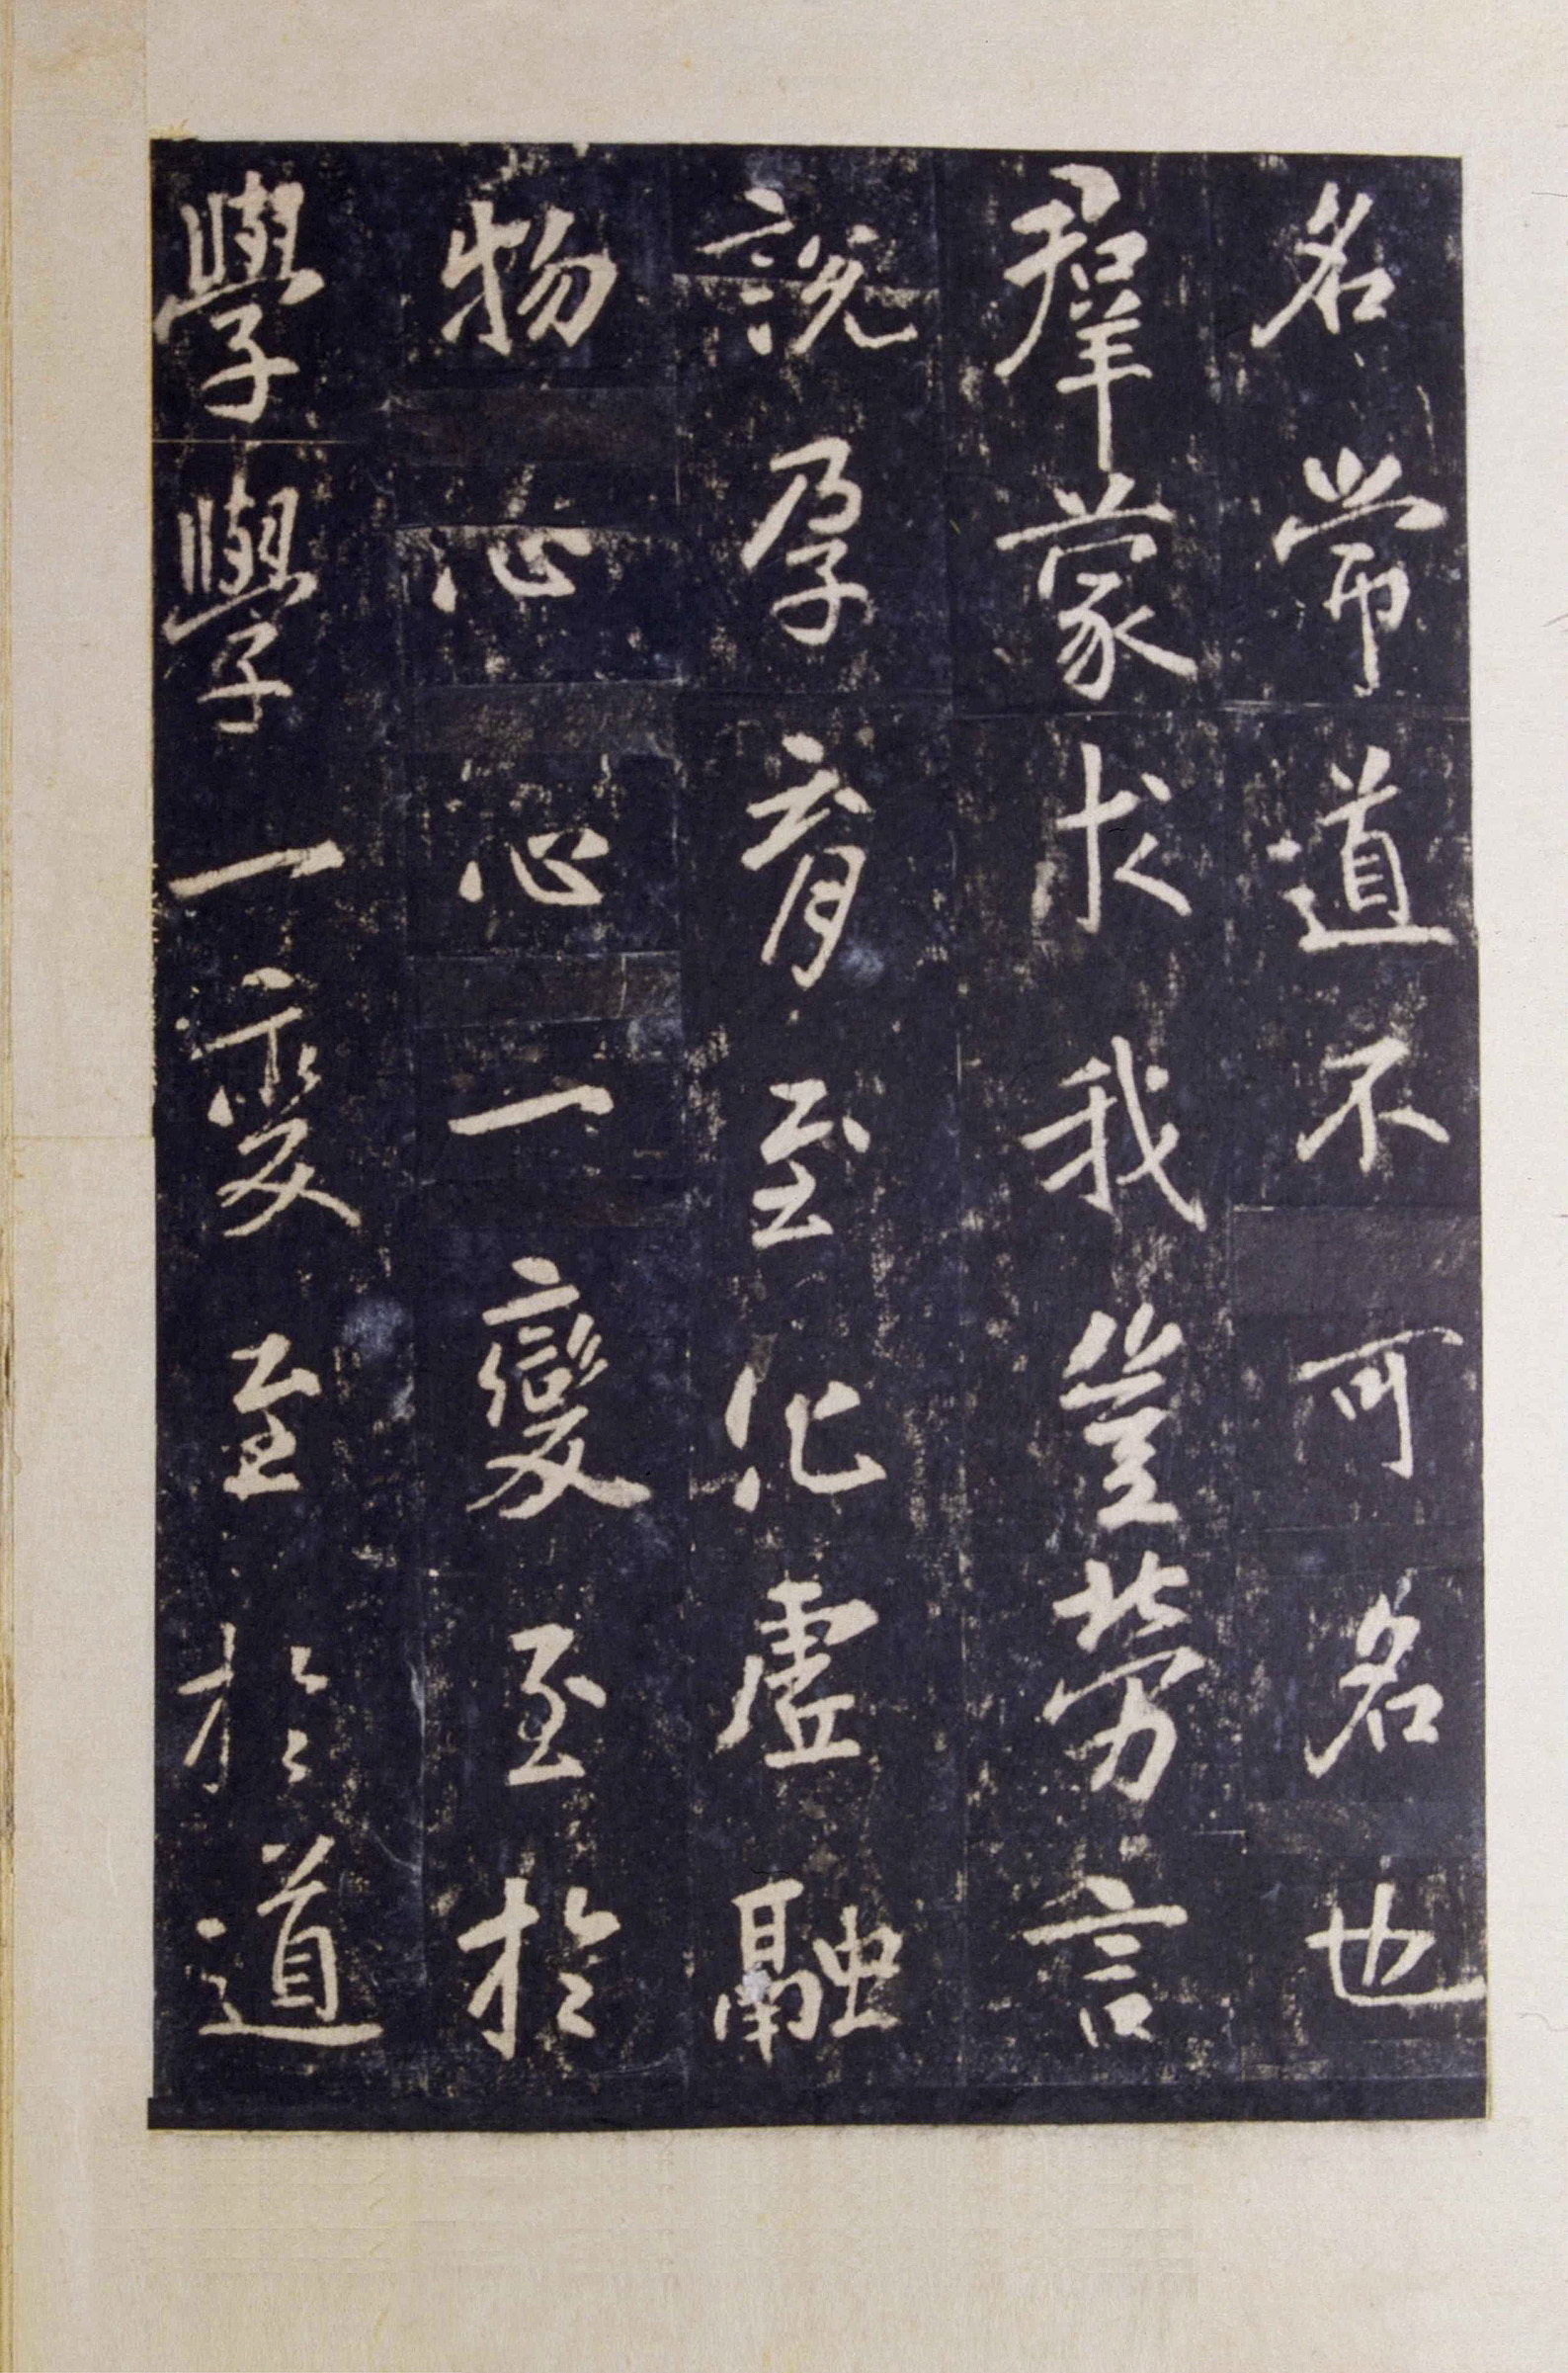 名常道不可名名也
羣蒙求我豈勞言
說孕育至化虛融
物心心一變至於
學學一變至於道